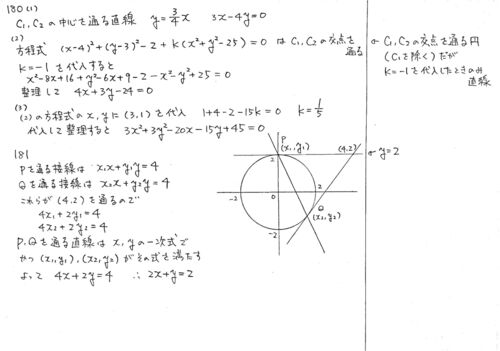 180 (1)
C₁, C₂ の中心を通る直線 y=3/4 x 3x-4y=0
(2)
方程式 (x-4)²+(y-3)²-2+k(x²+y²-25)=0 は C₁, C₂ の交点を通る
← C₁, C₂ の交点を通る円
(C₁を除く)だが
k=-1 を代入したときのみ
直線
k=-1 を代入すると
x²-8x+16+y²-6x+9-2-x²-y²+25=0
整理して 4x+3y-24=0
(3)
(2)の方程式の x, y に (3,1) を代入 1+4-2-15k=0 k=1/5
代入して整理すると 3x²+3y²-20x-15y+45=0
181
Pを通る接線は x₁x+y₁y=4
Qを通る接線は x₂x+y₂y=4
これらが (4,2) を通るので
4x₁+2y₁=4
4x₂+2y₂=4
P, Q を通る直線は x, y の一次式で
かつ (x₁,y₁), (x₂,y₂) がその式を満たす
よって 4x+2y=4 ∴ 2x+y=2
P
(x₁,y₁)
(4,2)
← y=2
2
-2
0
2
Q
(x₂,y₂)
-2